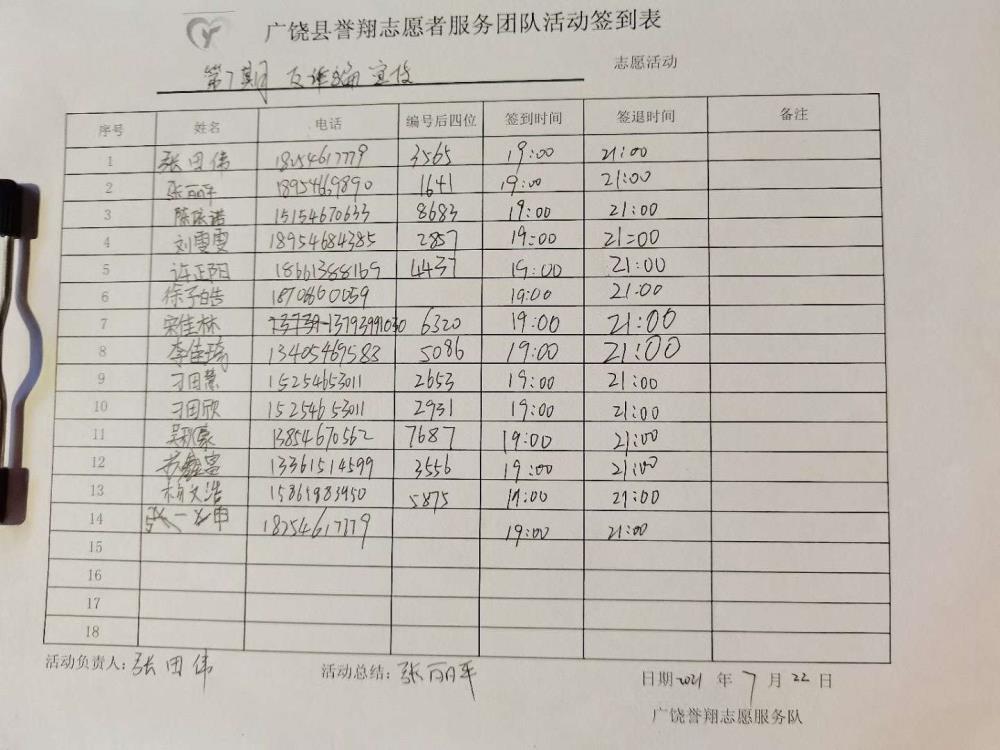 广饶县誉翔志愿者服务团队活动签到表
第7期 反诈骗宣传 志愿活动
序号 姓名 电话 编号后四位 签到时间 签退时间 备注
1 张田伟 18254617779 3565 19:00 21:00
2 张丽平 18954669890 1641 19:00 21:00
3 陈依诺 15154670633 8683 19:00 21:00
4 刘雯雯 18954684385 2857 19:00 21:00
5 许正阳 18661388169 4437 19:00 21:00
6 徐子皓 19:00 21:00
7 宋佳林 13793991030 6320 19:00 21:00
8 李佳琦 13405469583 5086 19:00 21:00
9 刁田慧 15254653011 2653 19:00 21:00
10 刁田欣 15254653011 2931 19:00 21:00
11 13854670562 7687 19:00 21:00
12 13361514599 3556 19:00 21:00
13 杨文浩 15861983950 5875 19:00 21:00
14 18254617779 19:00 21:00
15
16
17
18
活动负责人: 张田伟 活动总结: 张丽平 日期 2021 年 7 月 22 日
广饶誉翔志愿服务队